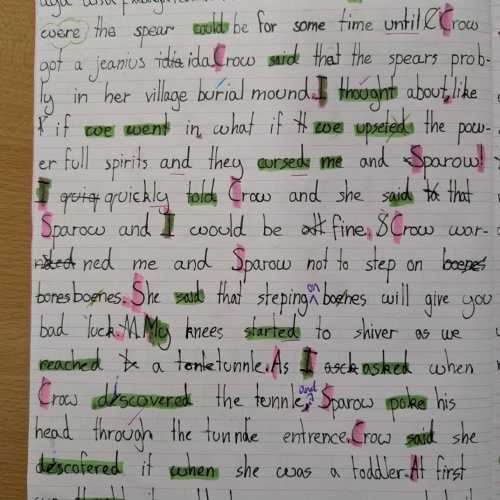 were the spear could be for some time until Crow
got a jeanius idia ida Crow said that the spears prob-
ly in her village burial mound. I thought about, like
if we went in, what if we upseted the pow-
er full spirits and they cursed me and Sparow!
I quiq quickly told Crow and she said that
Sparow and I would be fine. Crow war-
ned me and Sparow not to step on
bones boenes. She said that steping on boenes will give you
bad luck. My knees started to shiver as we
reached a tonle tunnle. As I ask asked when
Crow discovered the tunnle, and Sparow poke his
head through the tunnle entrence. Crow said she
descofered it when she was a toddler. At first